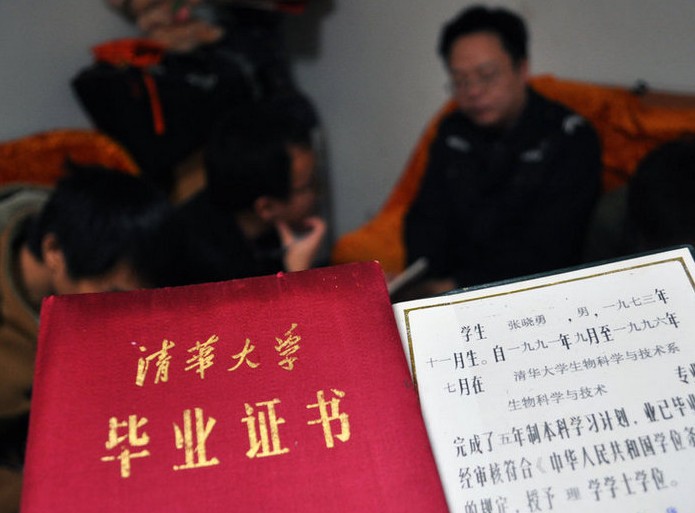 清华大学
毕业证书
学生 张晓勇 ,男,一九七三年
十一月生。自一九九一年九月至一九九六年
七月在 清华大学生物科学与技术系
生物科学与技术 专
完成了五年制本科学习计划,业已毕
经审核符合《中华人民共和国学位
的规定,授予 理 学学士学位。